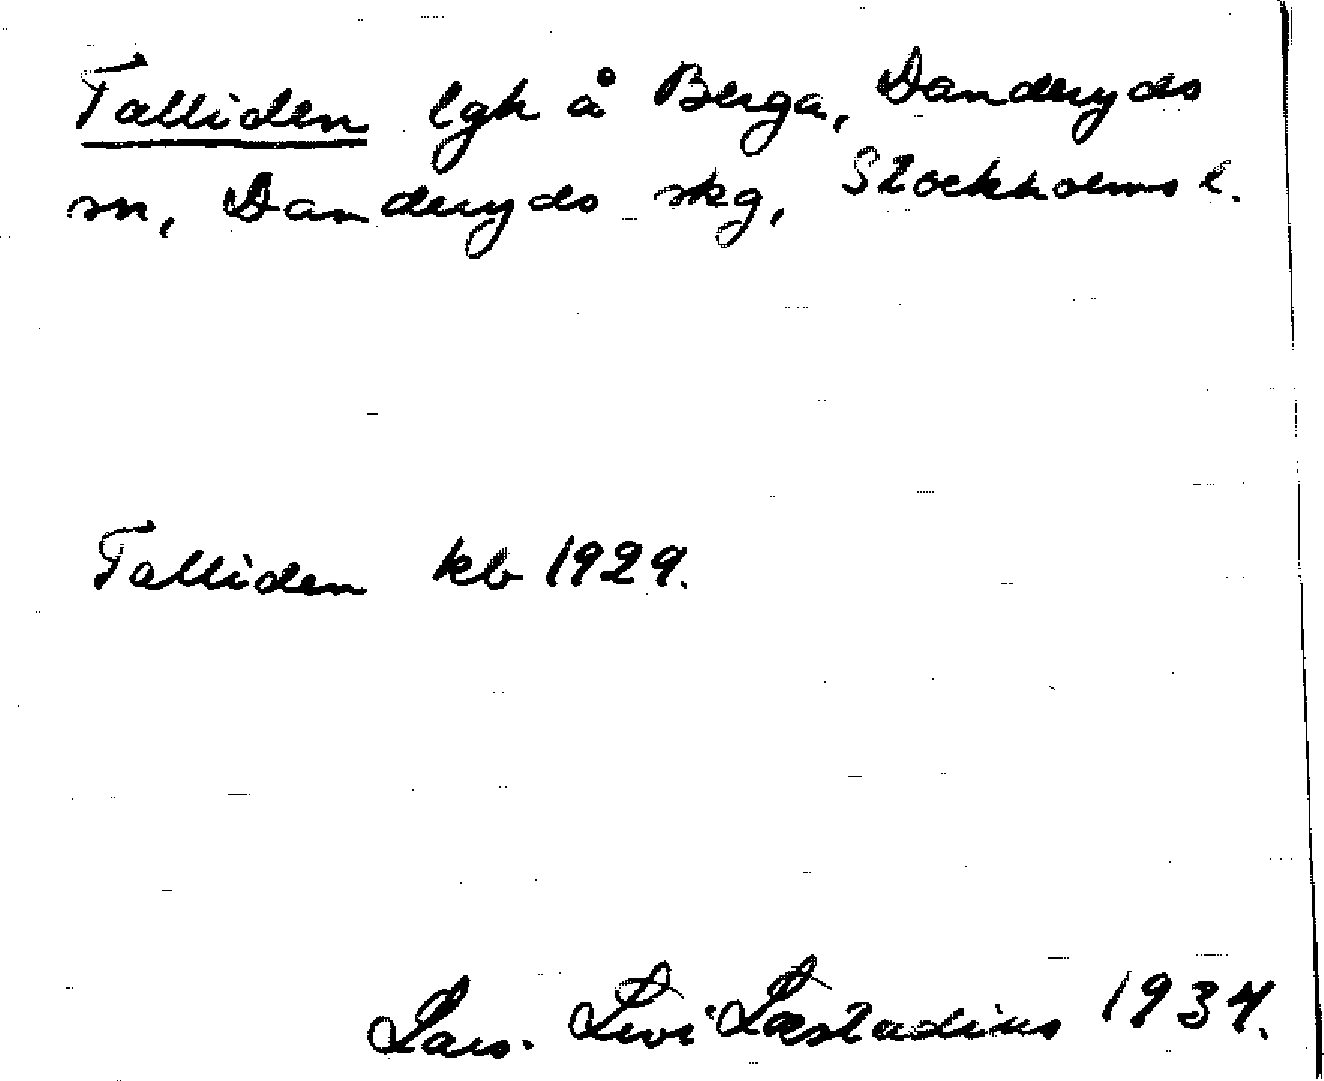 Talliden lgh å Berga, Danderyds
sn, Danderyds skg, Stockholms l.
Talliden kb 1929.
Lars. Levi Læstadius 1934.